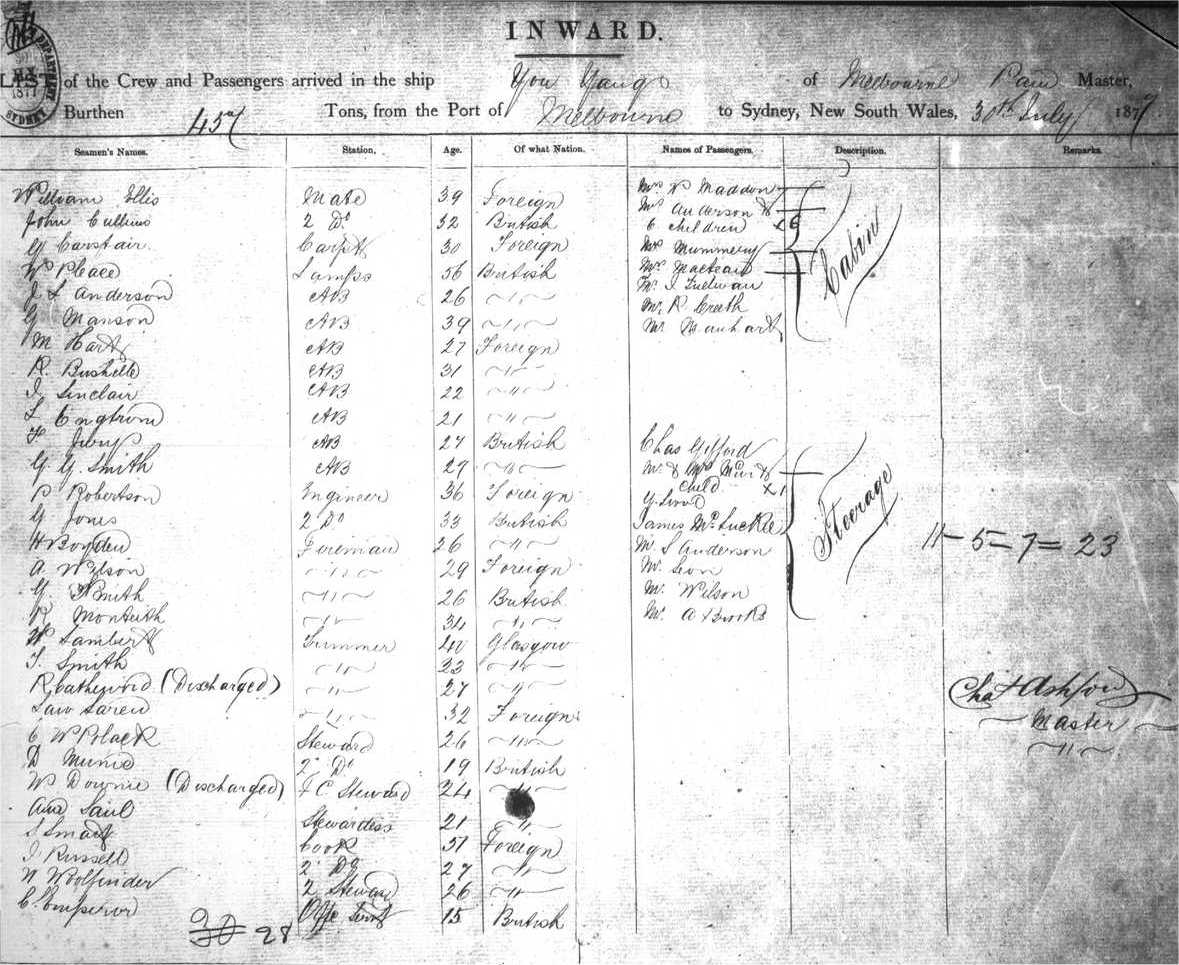 INWARD.
LIST of the Crew and Passengers arrived in the ship You Yangs of Melbourne Master,
Burthen 457 Tons, from the Port of Melbourne to Sydney, New South Wales, 30th July 1877
Seamen's Names. Station. Age. Of what Nation. Names of Passengers. Description. Remarks.
William Ellis Mate 39 Foreign
John Cullens 2 Do 32 British
G Carstair Carptr 30 Foreign
W Place Lamps 56 British
J L Anderson AB 26 "
G Manson AB 39 "
M Hart AB 27 Foreign
R. Bushelle AB 31 "
J. Sinclair AB 22 "
L Engstrom AB 21 "
AB 27 British
G. G. Smith AB 29 "
P Robertson Engineer 36 Foreign
G Jones 2 Do 33 British
H Boyden Fireman 26 "
A Wilson " 29 Foreign
G Smith " 26 British
R Monteith " 34 "
W Lambert Trimmer 40 Glasgow
T. Smith " 23 "
R Catherwood (Discharged) " 27 "
Law Laren " 32 Foreign
C W Polack Steward 26 "
D Munro 2 Do 19 British
W Downie (Discharged) F C Steward 24 "
Ann Saul Stewardess 21 "
S Smart Cook 51 Foreign
J Russell 2 Do 27 "
N Woolfinder 2 Steward 26 "
C. Emperor 15 British
30 28
Mrs W Maddon
Mrs Anderson &
6 children x6
Mrs Mummery
Mrs Maclean
Mr J Ludman
Mr R Creeth
Mr Manhart
Cabin
Chas Gifford
Mr & Mrs Muir &
Child x1
G. Wood
James McLuckie
Mr S Anderson
Mr Leon
Mr Wilson
Mr A Brooks
Steerage
11 - 5 - 7 = 23
Chas Ashford
Master